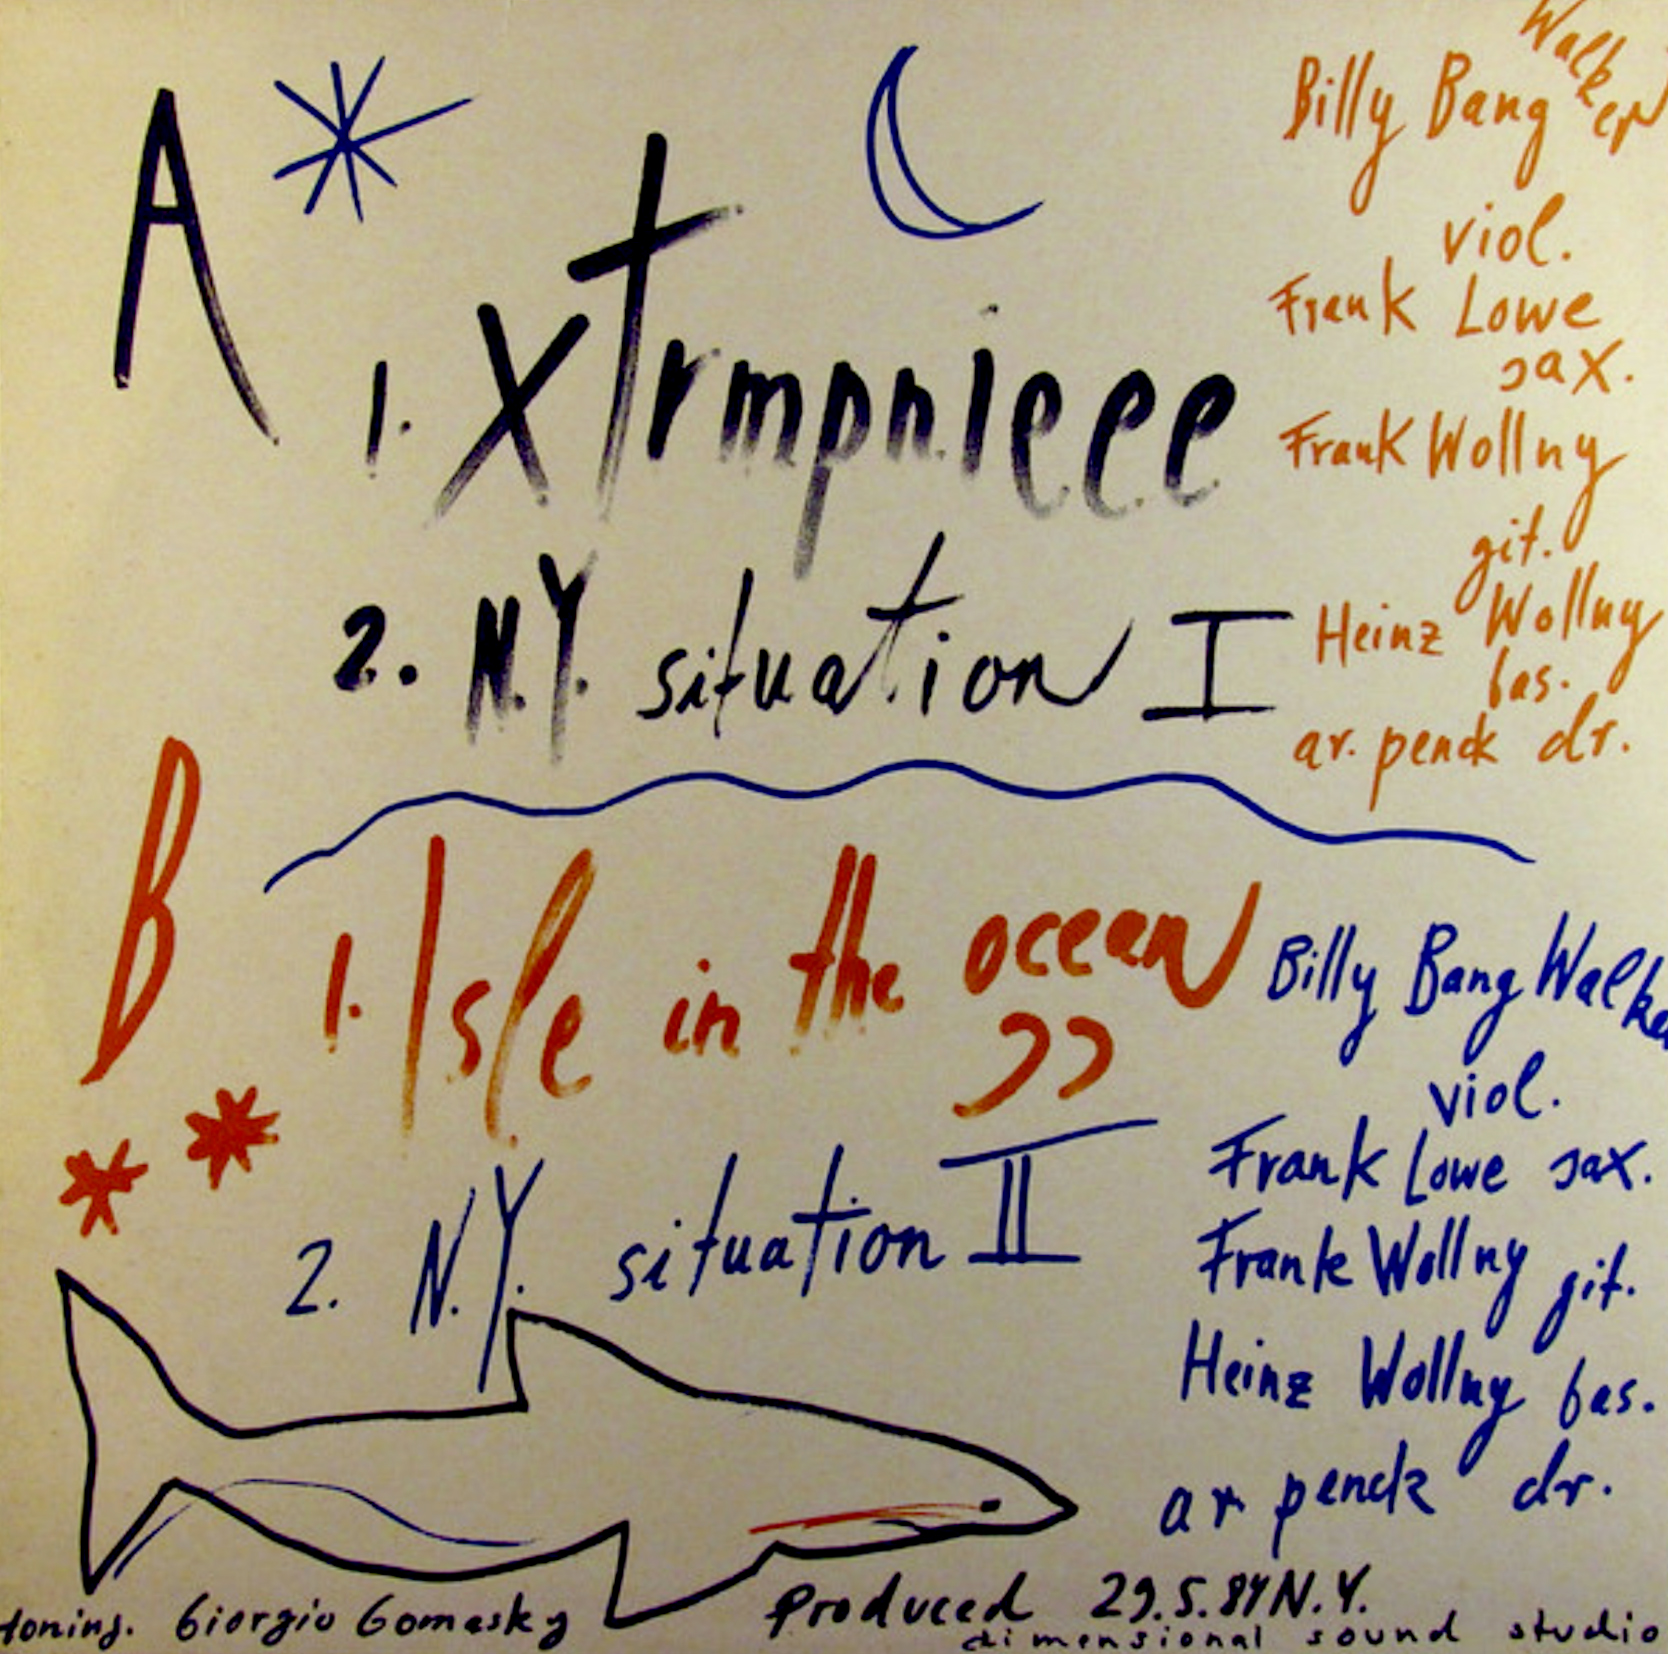 A
1. xtrmpnieee
2. N.Y. situation I
Billy Bang Walker
viol.
Frank Lowe
sax.
Frank Wollny
git.
Heinz Wollny
bas.
ar. penck dr.
B
1. Isle in the ocean
2. N.Y. situation II
Billy Bang Walke
viol.
Frank Lowe sax.
Frank Wollny git.
Heinz Wollny bas.
ar penck dr.
Giorgio Gomesky
Produced 29.5.84 N.Y.
dimensional sound studio